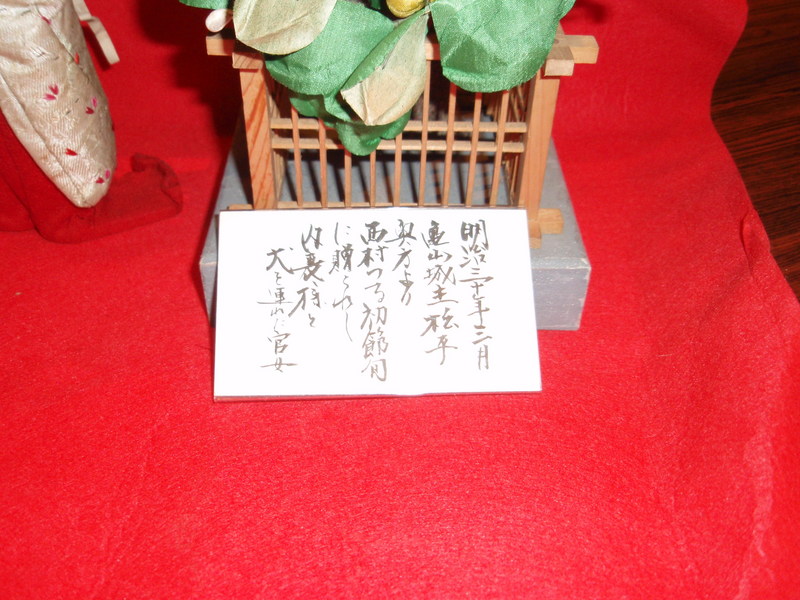 明治三十年十二月
亀山城主松平
奥方より
西村つる初節句
に贈られし
内裏様と
犬を連れた官女